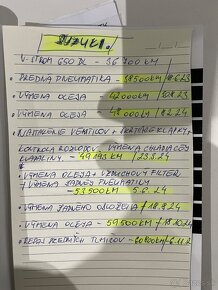 SUZUKI
V-STROM 650 DL - 36 700 KM
• PREDNÁ PNEUMATIKA - 38500KM/
• VÝMENA OLEJA - 42000KM/
• VÝMENA OLEJA - 48000KM/ 18.2.24
• NASTAVENIE VENTILOV + ŠKRTIACE KLAPKY +
KONTROLA ROZVODOV, VÝMENA CHLADIACEJ
KVAPALINY - KM/ 23.3.24
• VÝMENA OLEJA + VZDUCHOVÝ FILTER
+ VÝMENA ZADNEJ PNEUMATIKY
- 53500KM 5.6.24
• VÝMENA ZADNÉHO / 18.8.24
• VÝMENA OLEJA - 59500KM/
• REPAS PREDNÝCH TLMIČOV -